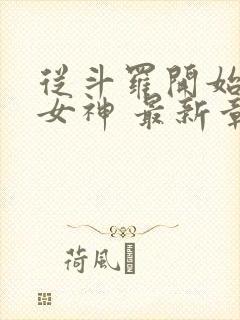 從斗羅開始
女神 最新章
荷風